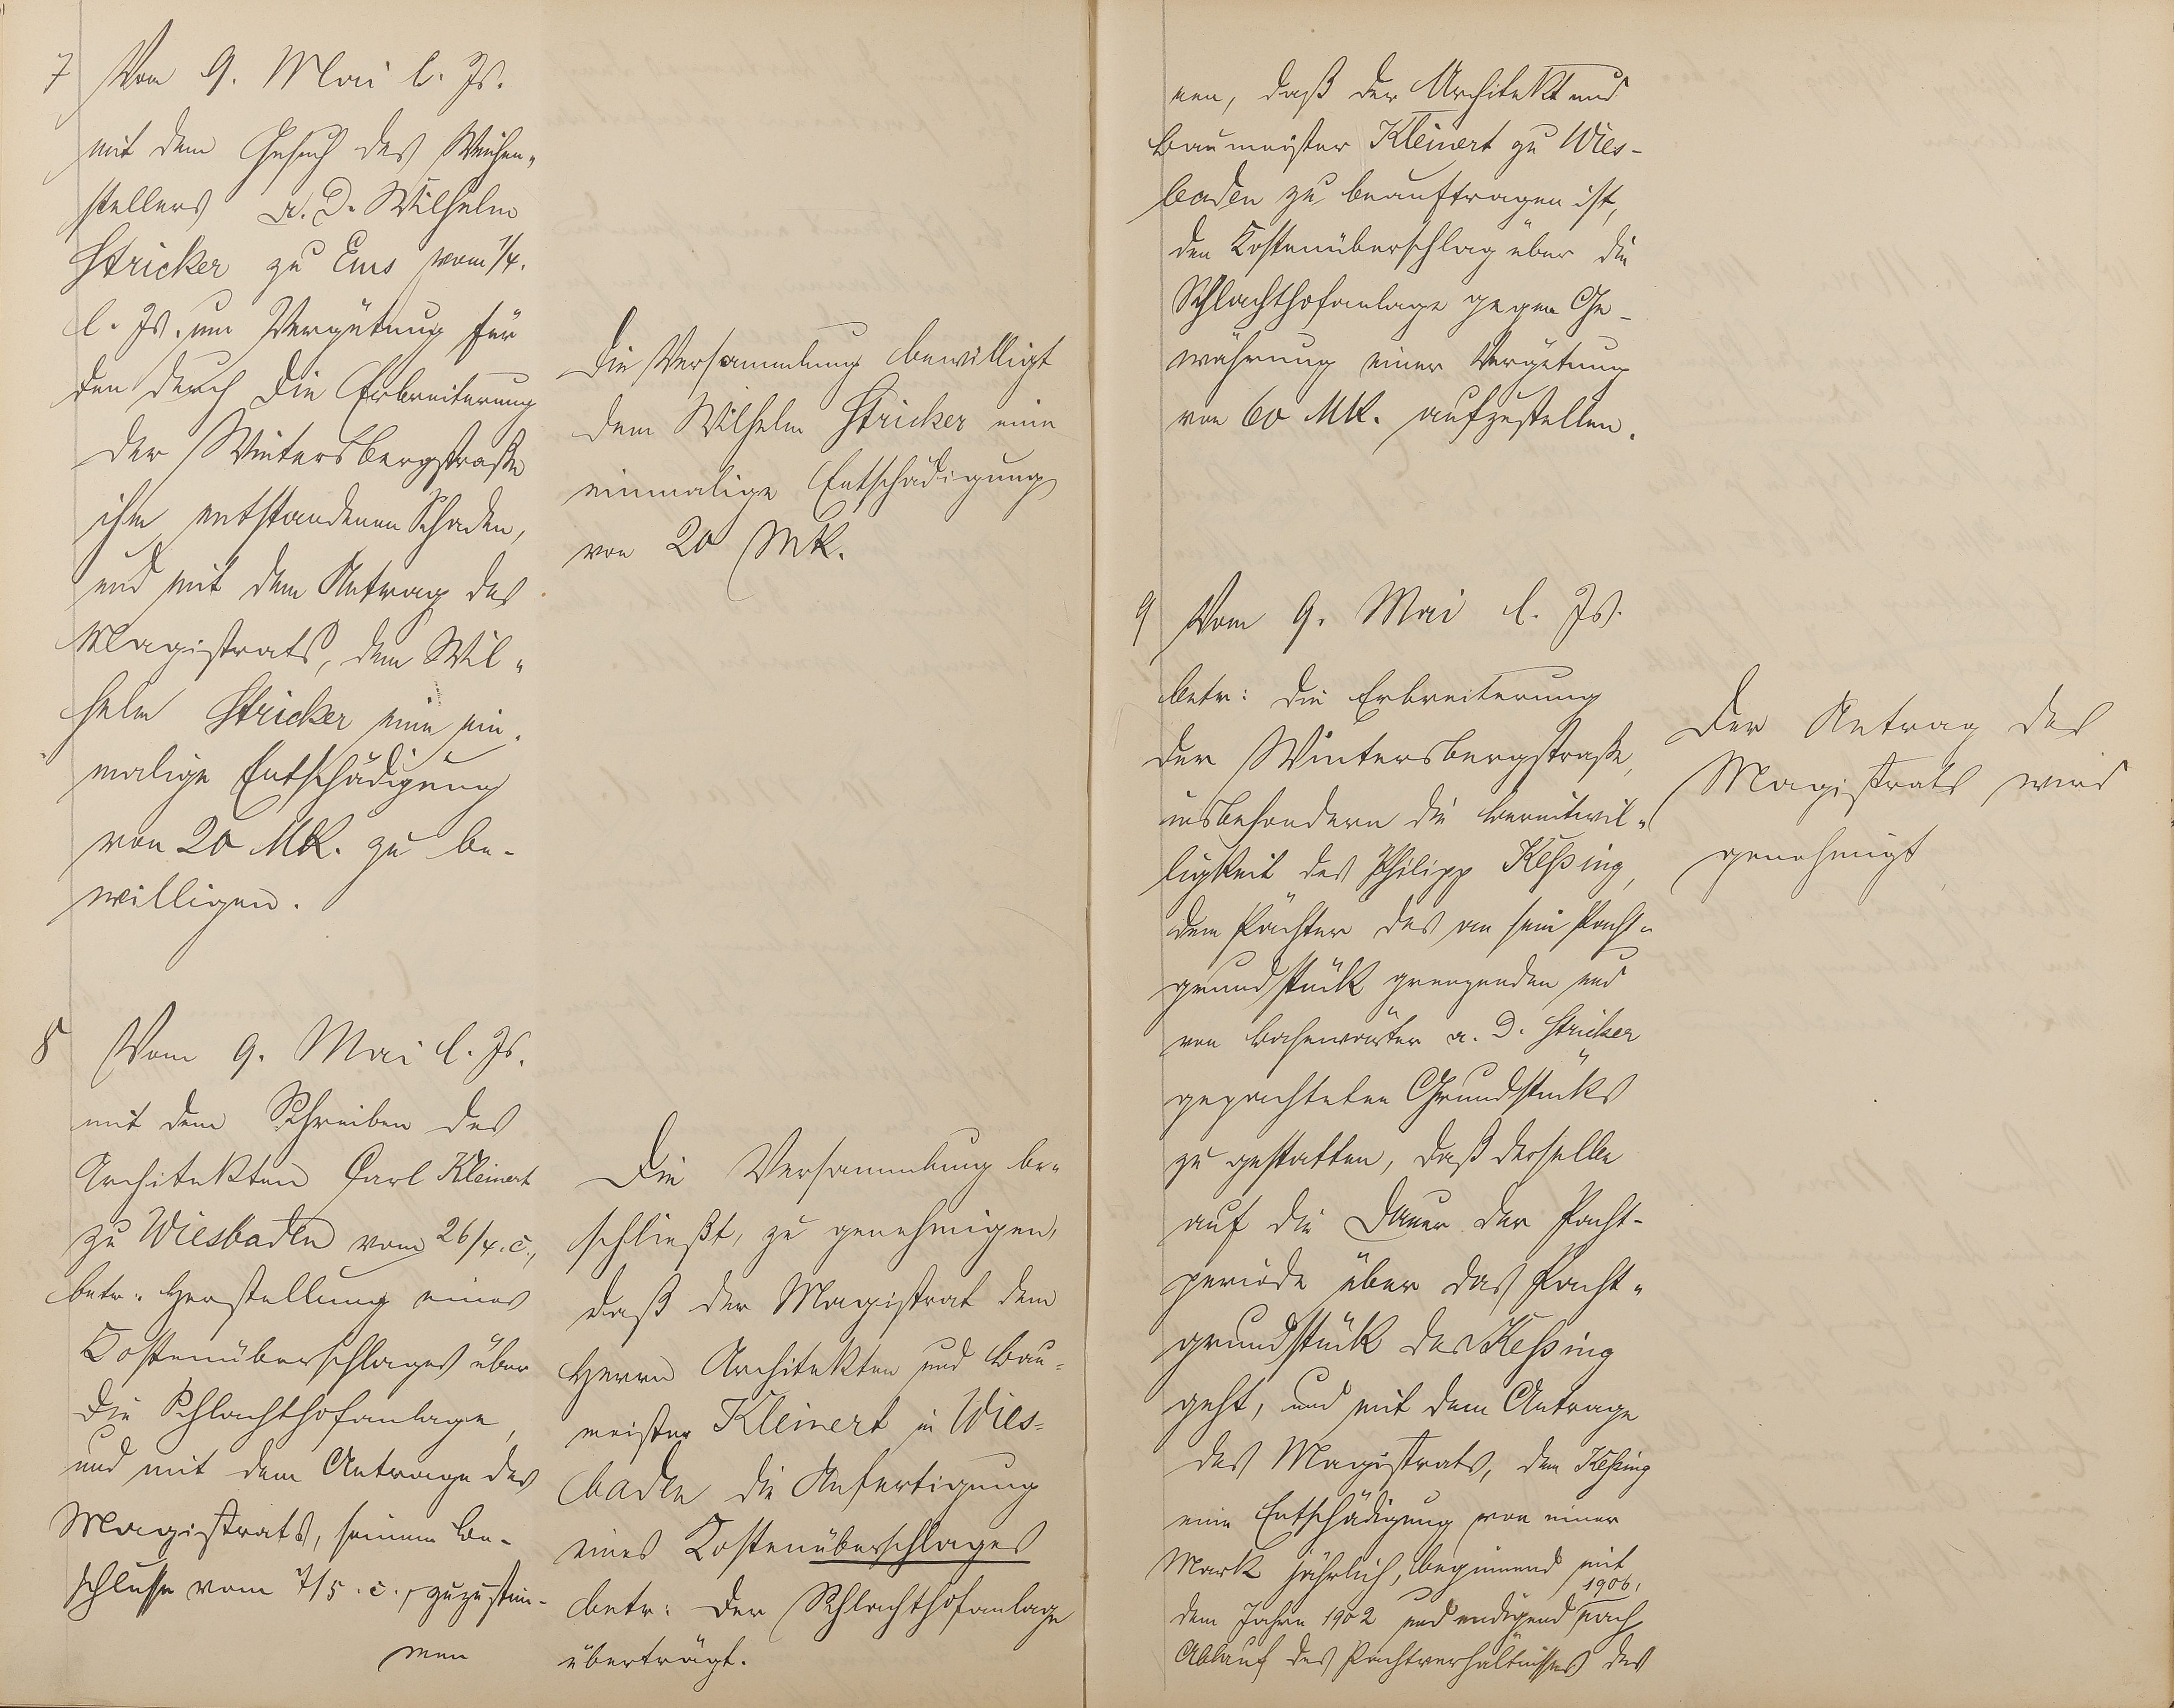 7 Vom 9. Mai l. Js.
mit dem Gesuch des Weichen-
stellers a. D. Wilhelm
Stricker zu Ems vom 1/4.
l. Js. um Vergütung für
den durch die Erbreiterung
der Wintersbergstraße
ihm entstandenen Schaden,
und mit dem Antrag des
Magistrats, dem Wil-
helm Stricker eine ein-
malige Entschädigung
von 20 Mk. zu be-
willigen.
Die Versammlung bewilligt
dem Wilhelm Stricker eine
einmalige Entschädigung
von 20 Mk.
8 Vom 9. Mai l. Js.
mit dem Schreiben des
Architekten Carl Kleinert
zu Wiesbaden vom 26/4. c.,
betr. Herstellung eines
Kostenüberschlages über
die Schlachthofanlage,
und mit dem Antrage des
Magistrats, seinem Be-
schlusse vom 7/5. c., zuzustim-
men
Die Versammlung be-
schließt, zu genehmigen,
daß der Magistrat dem
Herrn Architekten und Bau-
meister Kleinert in Wies-
baden die Anfertigung
eines Kostenüberschlages
betr. der Schlachthofanlage
überträgt.
nen, daß der Architekt und
Baumeister Kleinert zu Wies-
baden zu beauftragen ist,
den Kostenüberschlag über die
Schlachthofanlage gegen Ge-
währung einer Vergütung
von 60 Mk. aufzustellen.
9 Vom 9. Mai l. Js.
betr: die Erbreiterung
der Wintersbergstraße,
insbesondern die Bereitwil-
ligkeit des Philipp Keßing,
dem Pächter des an sein Pacht-
grundstück grenzenden und
von Bahnwärter a. D. Stricker
gepachteten Grundstücks
zu gestatten, daß derselbe
auf die Dauer der Pacht-
periode über das Pacht-
grundstück des Keßing
geht, und mit dem Antrage
des Magistrats, dem Keßing
eine Entschädigung von einer
Mark jährlich, beginnend mit
dem Jahre 1902 und endigend nach 1906,
Ablauf des Pachtverhältnisses des
Der Antrag des
Magistrats wird
genehmigt